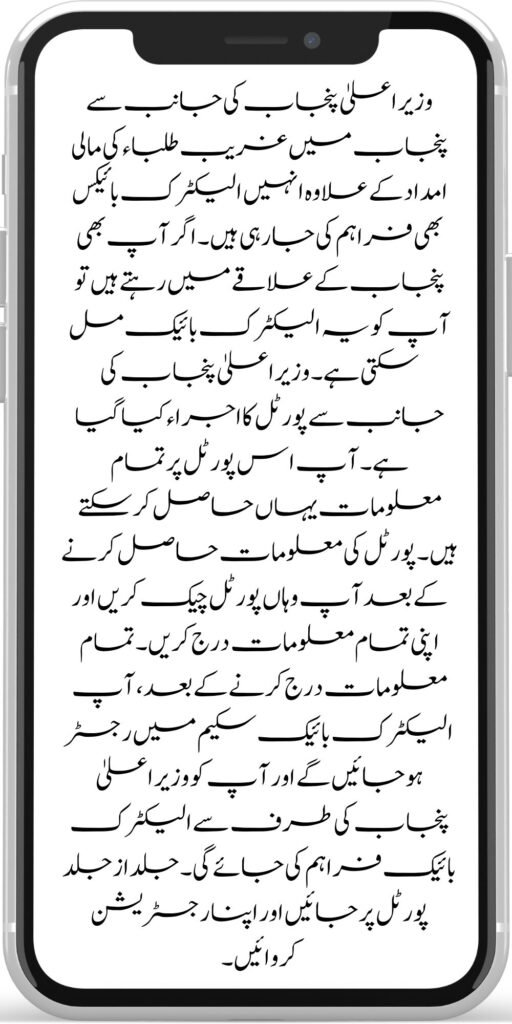 وزیر اعلیٰ پنجاب کی جانب سے
پنجاب میں غریب طلباء کی مالی
امداد کے علاوہ انہیں الیکٹرک بائیکس
بھی فراہم کی جارہی ہیں۔ اگر آپ بھی
پنجاب کے علاقے میں رہتے ہیں تو
آپ کو یہ الیکٹرک بائیک مل
سکتی ہے۔ وزیر اعلیٰ پنجاب کی
جانب سے پورٹل کا اجراء کیا گیا
ہے۔ آپ اس پورٹل پر تمام
معلومات یہاں حاصل کر سکتے
ہیں۔ پورٹل کی معلومات حاصل کرنے
کے بعد آپ وہاں پورٹل چیک کریں اور
اپنی تمام معلومات درج کریں۔ تمام
معلومات درج کرنے کے بعد، آپ
الیکٹرک بائیک سکیم میں رجسٹر
ہو جائیں گے اور آپ کو وزیر اعلیٰ
پنجاب کی طرف سے الیکٹرک
بائیک فراہم کی جائے گی۔ جلد از جلد
پورٹل پر جائیں اور اپنا رجسٹریشن
کروائیں۔